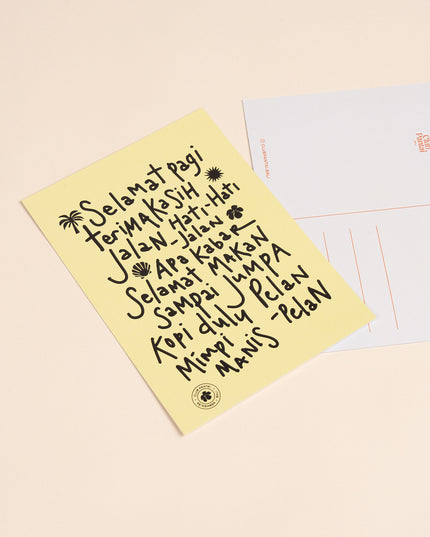 Selamat pagi
teriMAKASiH
JALAN- HAti-HAti
-JALAN
APA KABAR
SelaMAt MAKAN
SAMPAi JUMPA
Kopi dulu Pelan
-PelaN
MiMPi
MANiS
Club
Pantai